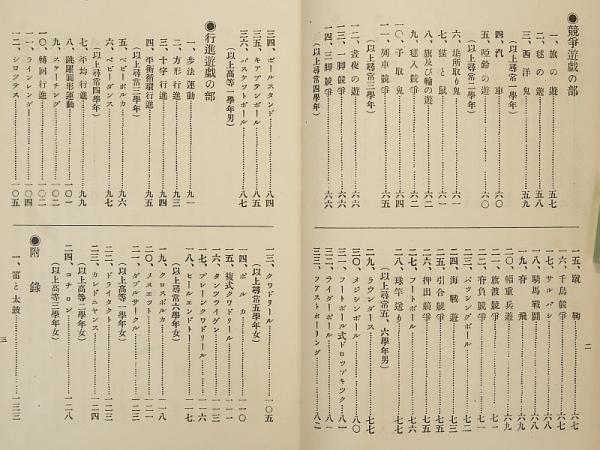 ●競爭遊戯の部
一、旗の遊……五七
二、毬の遊……五八
三、西洋鬼……五九
(以上尋常一學年)
四、汽車……六〇
五、啞鈴の遊……六〇
六、場所取り鬼……六一
七、猫と鼠……六一
八、旗及び輪の遊……六二
九、毬入競爭……六四
一〇、子取鬼……六五
一一、列車競爭……六五
(以上尋常三學年)
一二、晝夜の遊……六六
一三、一脚競爭……六六
一四、三脚競爭……六六
(以上尋常四學年)
一五、蹴鞠……六七
一六、千鳥競爭……六七
一七、サルパシ……六七
一八、騎馬戰鬪……六八
一九、脊飛……六九
二〇、輜重兵遊……六九
二一、旗渡競爭……七一
二二、脊負競爭……七一
二三、パツシングボール……七二
二四、海戰遊……七三
二五、引合競爭……七五
二六、押出競爭……七五
二七、フートボール……七六
二八、球竿送り……七七
(以上尋常五、六學年男)
二九、ラウンダース……七七
三〇、メジシンボール……八〇
三一、フートボール式ドロツプキツク……八一
三二、ライダーボール……八一
三三、フアストボーリング……八二
二
三四、ポールスタンド……八四
三五、キアプテンボール……八五
三六、バスケツトボール……八七
(以上高等一學年男)
●行進遊戯の部
一、歩法運動……九一
二、方形行進……九三
三、十字行進……九四
四、平衡循環行進……九五
(以上尋常三學年)
五、ベビーポルカ……九六
六、ベビーダンス……九七
(以上尋常四學年)
七、平均行進……九九
八、跳躍圓形運動……一〇一
九、スケーチング……一〇二
一〇、轉回行進……一〇二
一一、ラインレンダー……一〇四
一二、シヨツテス……一〇五
一三、クワドリール……一〇五
(以上尋常五學年女)
一四、ポルカ……一一〇
一五、複式クワドリール……一一一
一六、タンツライゲン……一一三
一七、プレーンクワドリール……一一六
一八、ヒールエンドトー……一一七
(以上尋常六學年女)
一九、クロスポルカ……一一八
二〇、メヌエツト……一二一
二一、ダブルサークル……一二二
(以上高等一學年女)
二二、ドライタクト……一二三
二三、カレドニヤンス……一二四
(以上高等二學年女)
二四、コチロン……一二八
(以上高等三學年女)
●附錄
一、笛と太鼓……一三三
三